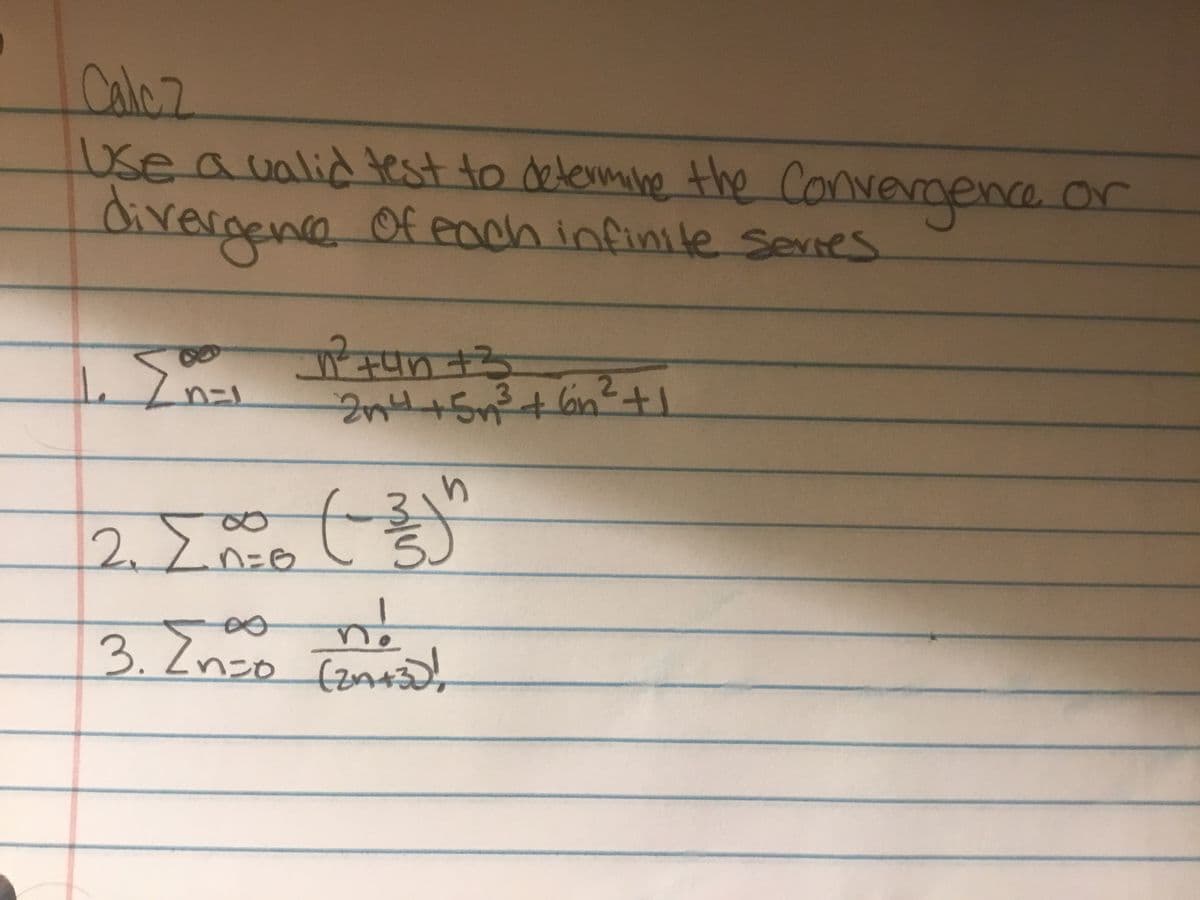 Calc 2
Use a valid test to determine the Convergence or
divergence of each infinite series
1. ∑_{n=1}^{∞} (n²+4n+3)/(2n⁴+5n³+6n²+1)
2. ∑_{n=0}^{∞} (-3/5)ⁿ
3. ∑_{n=0}^{∞} n!/(2n+3)!